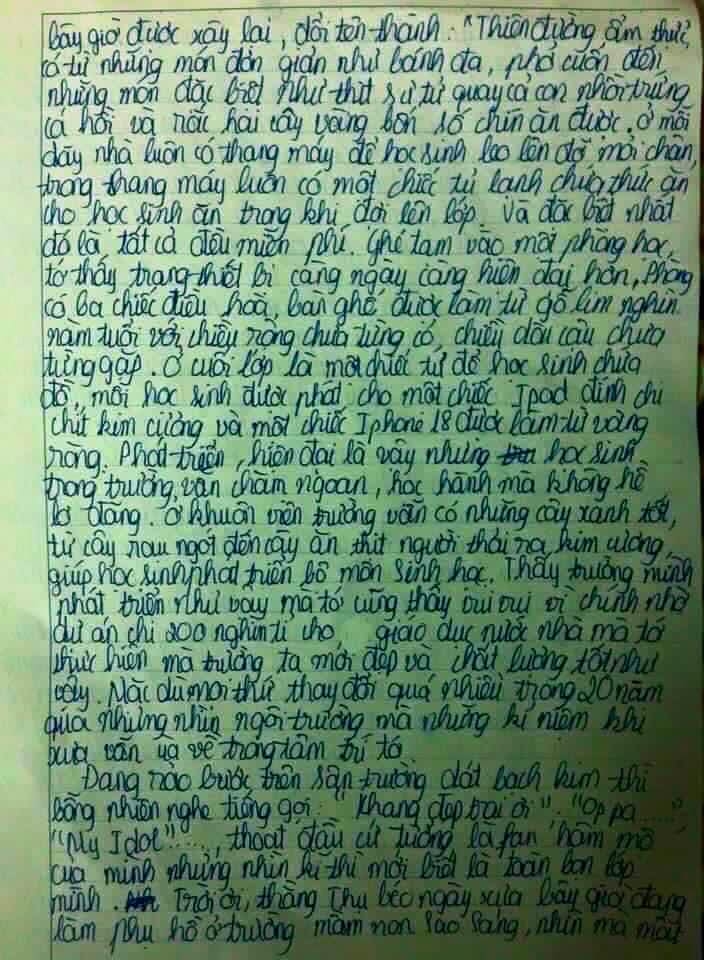 bây giờ được xây lại, đổi tên thành: "Thiên đường ẩm thực,
có từ những món đơn giản như bánh đa, phở cuốn đến
những món đặc biệt như thịt sư tử quay cả con nhồi trứng
cá hồi và rắc hai cây vàng bốn số chín ăn được. Ở mỗi
dãy nhà luôn có thang máy để học sinh leo lên đỡ mỏi chân,
trong thang máy luôn có một chiếc tủ lạnh chứa thức ăn
cho học sinh ăn trong khi đợi lên lớp. Và đặc biệt nhất
đó là tất cả đều miễn phí. Ghé tạm vào một phòng học,
tớ thấy trang thiết bị càng ngày càng hiện đại hơn, phòng
có ba chiếc điều hoà, bàn ghế được làm từ gỗ lim nghìn
năm tuổi với chiều rộng chưa từng có, chiều dầu cầu chưa
từng gặp. Ở cuối lớp là một chiếc tủ để học sinh chứa
đồ, mỗi học sinh được phát cho một chiếc Ipad đính chi
chít kim cương và một chiếc Iphone 18 được làm từ vàng
ròng. Phát triển, hiện đại là vậy nhưng học sinh
trong trường vẫn chăm ngoan, học hành mà không hề
lơ đãng. Ở khuôn viên trường vẫn có những cây xanh tốt,
từ cây rau ngót đến cây ăn thịt người thải ra kim cương,
giúp học sinh phát triển bộ môn Sinh học. Thấy trường mình
phát triển như vậy mà tớ cũng thấy vui vui vì chính nhờ
dự án chi 200 nghìn tỉ cho giáo dục nước nhà mà tớ
thực hiện mà trường ta mới đẹp và chất lượng tốt như
vậy. Mặc dù mọi thứ thay đổi quá nhiều trong 20 năm
qua nhưng nhìn ngôi trường mà những kỉ niệm khi
xưa vẫn ùa về trong tâm trí tớ.
Đang rảo bước trên sân trường dát bạch kim thì
bỗng nhiên nghe tiếng gọi: "Khang đẹp trai ơi". "Oppa.....",
"My Idol"....., thoạt đầu cứ tưởng là fan hâm mộ
của mình nhưng nhìn kĩ thì mới biết là toàn bọn lớp
mình. Trời ơi, thằng Thụ béo ngày xưa bây giờ đang
làm phụ hồ ở trường mầm non Sao Sáng, nhìn mà